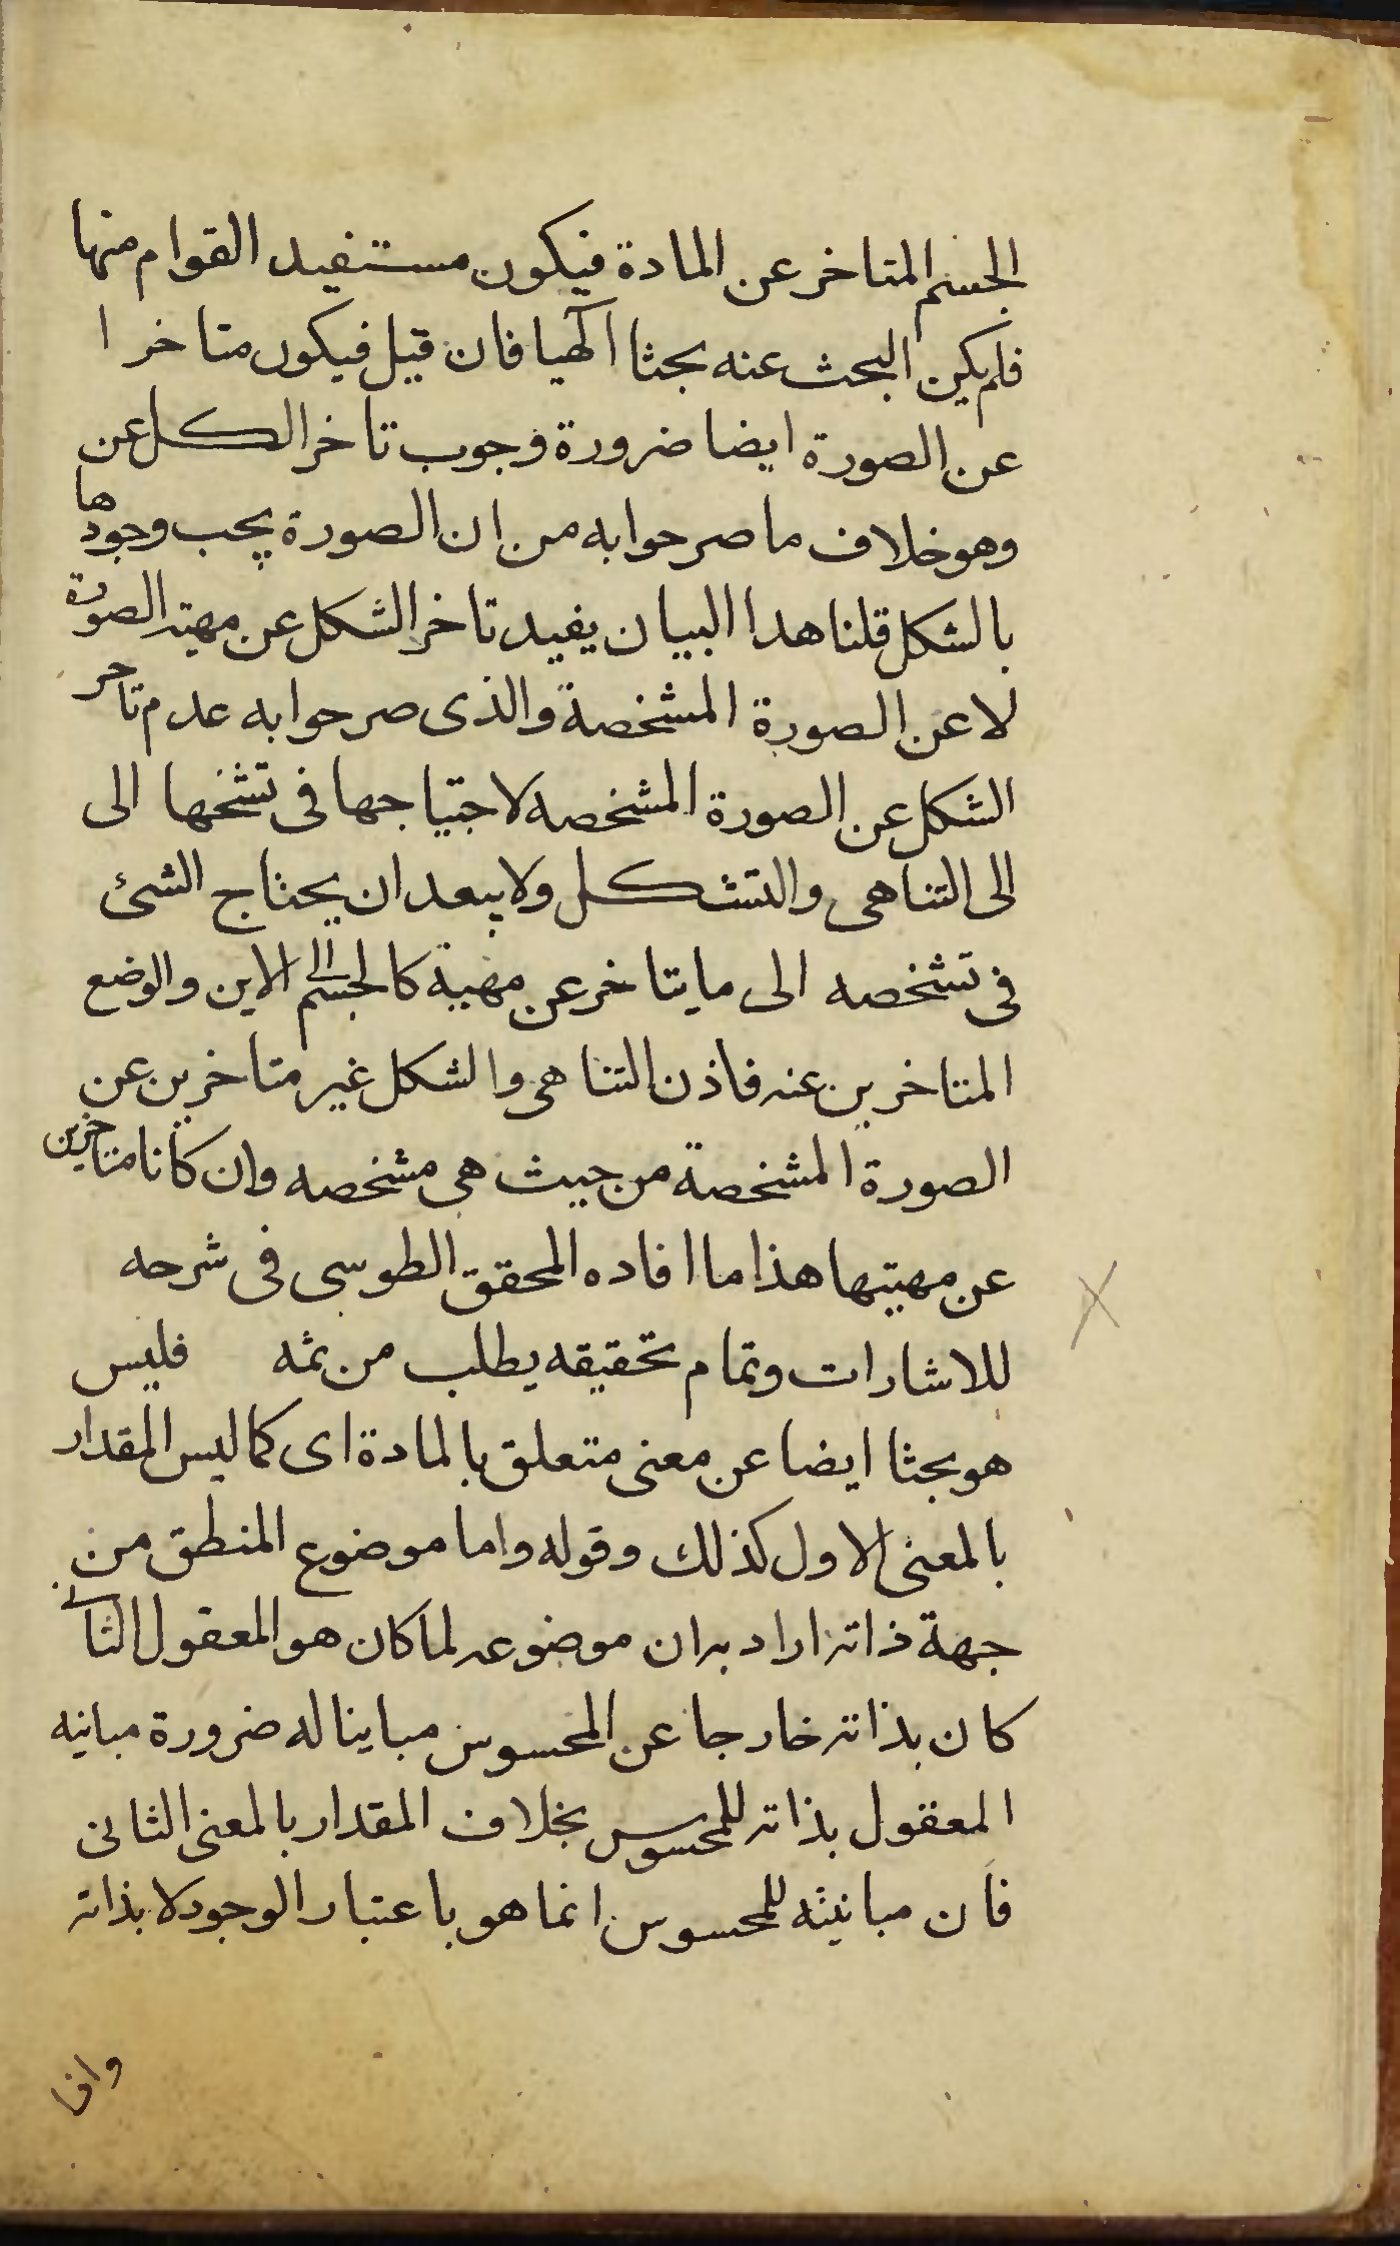 الجسم المتاخر عن المادة فيكون مستفيد القوام منها
فلم يكن البحث عنه بحثا الٓهيا فان قيل فيكون متاخرا
عن الصورة ايضا ضرورة وجوب تاخر الكل عن
وهو خلاف ما صرحوا به من ان الصورة يجب وجودها
بالشكل قلنا هدا البيان يفيد تاخر الشكل عن مهية الصورة
لا عن الصورة المشخصة والذى صرحوا به عدم تاخر
الشكل عن الصورة المشخصه لاحتياجها فى تشخها الى
الى التناهى والتشكل ولا يبعد ان يحتاج الشئ
فى تشخصه الى ما يتاخر عن مهية كالجسم الى الاين والوضع
المتاخرين عنه فاذن التناهى والشكل غير متاخرين عن
الصورة المشخصة من حيث هى مشخصه وان كانا متاخرين
عن مهيتها هذا ما افاده المحقق الطوسى فى شرحه
للاشارات وتمام تحقيقه يطلب من ثمه فليس
هو بحثا ايضا عن معنى متعلق بالمادة اى كما ليس المقدار
بالمعنى الاول كذلك وقوله واما موضوع المنطق من
جهة ذاته اراد به ان موضوعه لما كان هو المعقول الثانى
كان بذاته خارجا عن المحسوس مباينا له ضرورة مباينه
المعقول بذاته للمحسوس بخلاف المقدار بالمعنى الثانى
فان مباينثه للمحسوس انما هو باعتبار الوجود لا بذاته